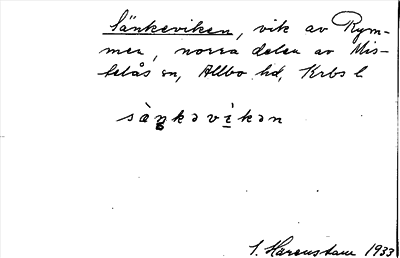 Sänkeviken, vik av Rym-
men, norra delen av Mis-
telås sn, Allbo hd, Krbs l
sàŋkəvikən
S. Harenstam 1933